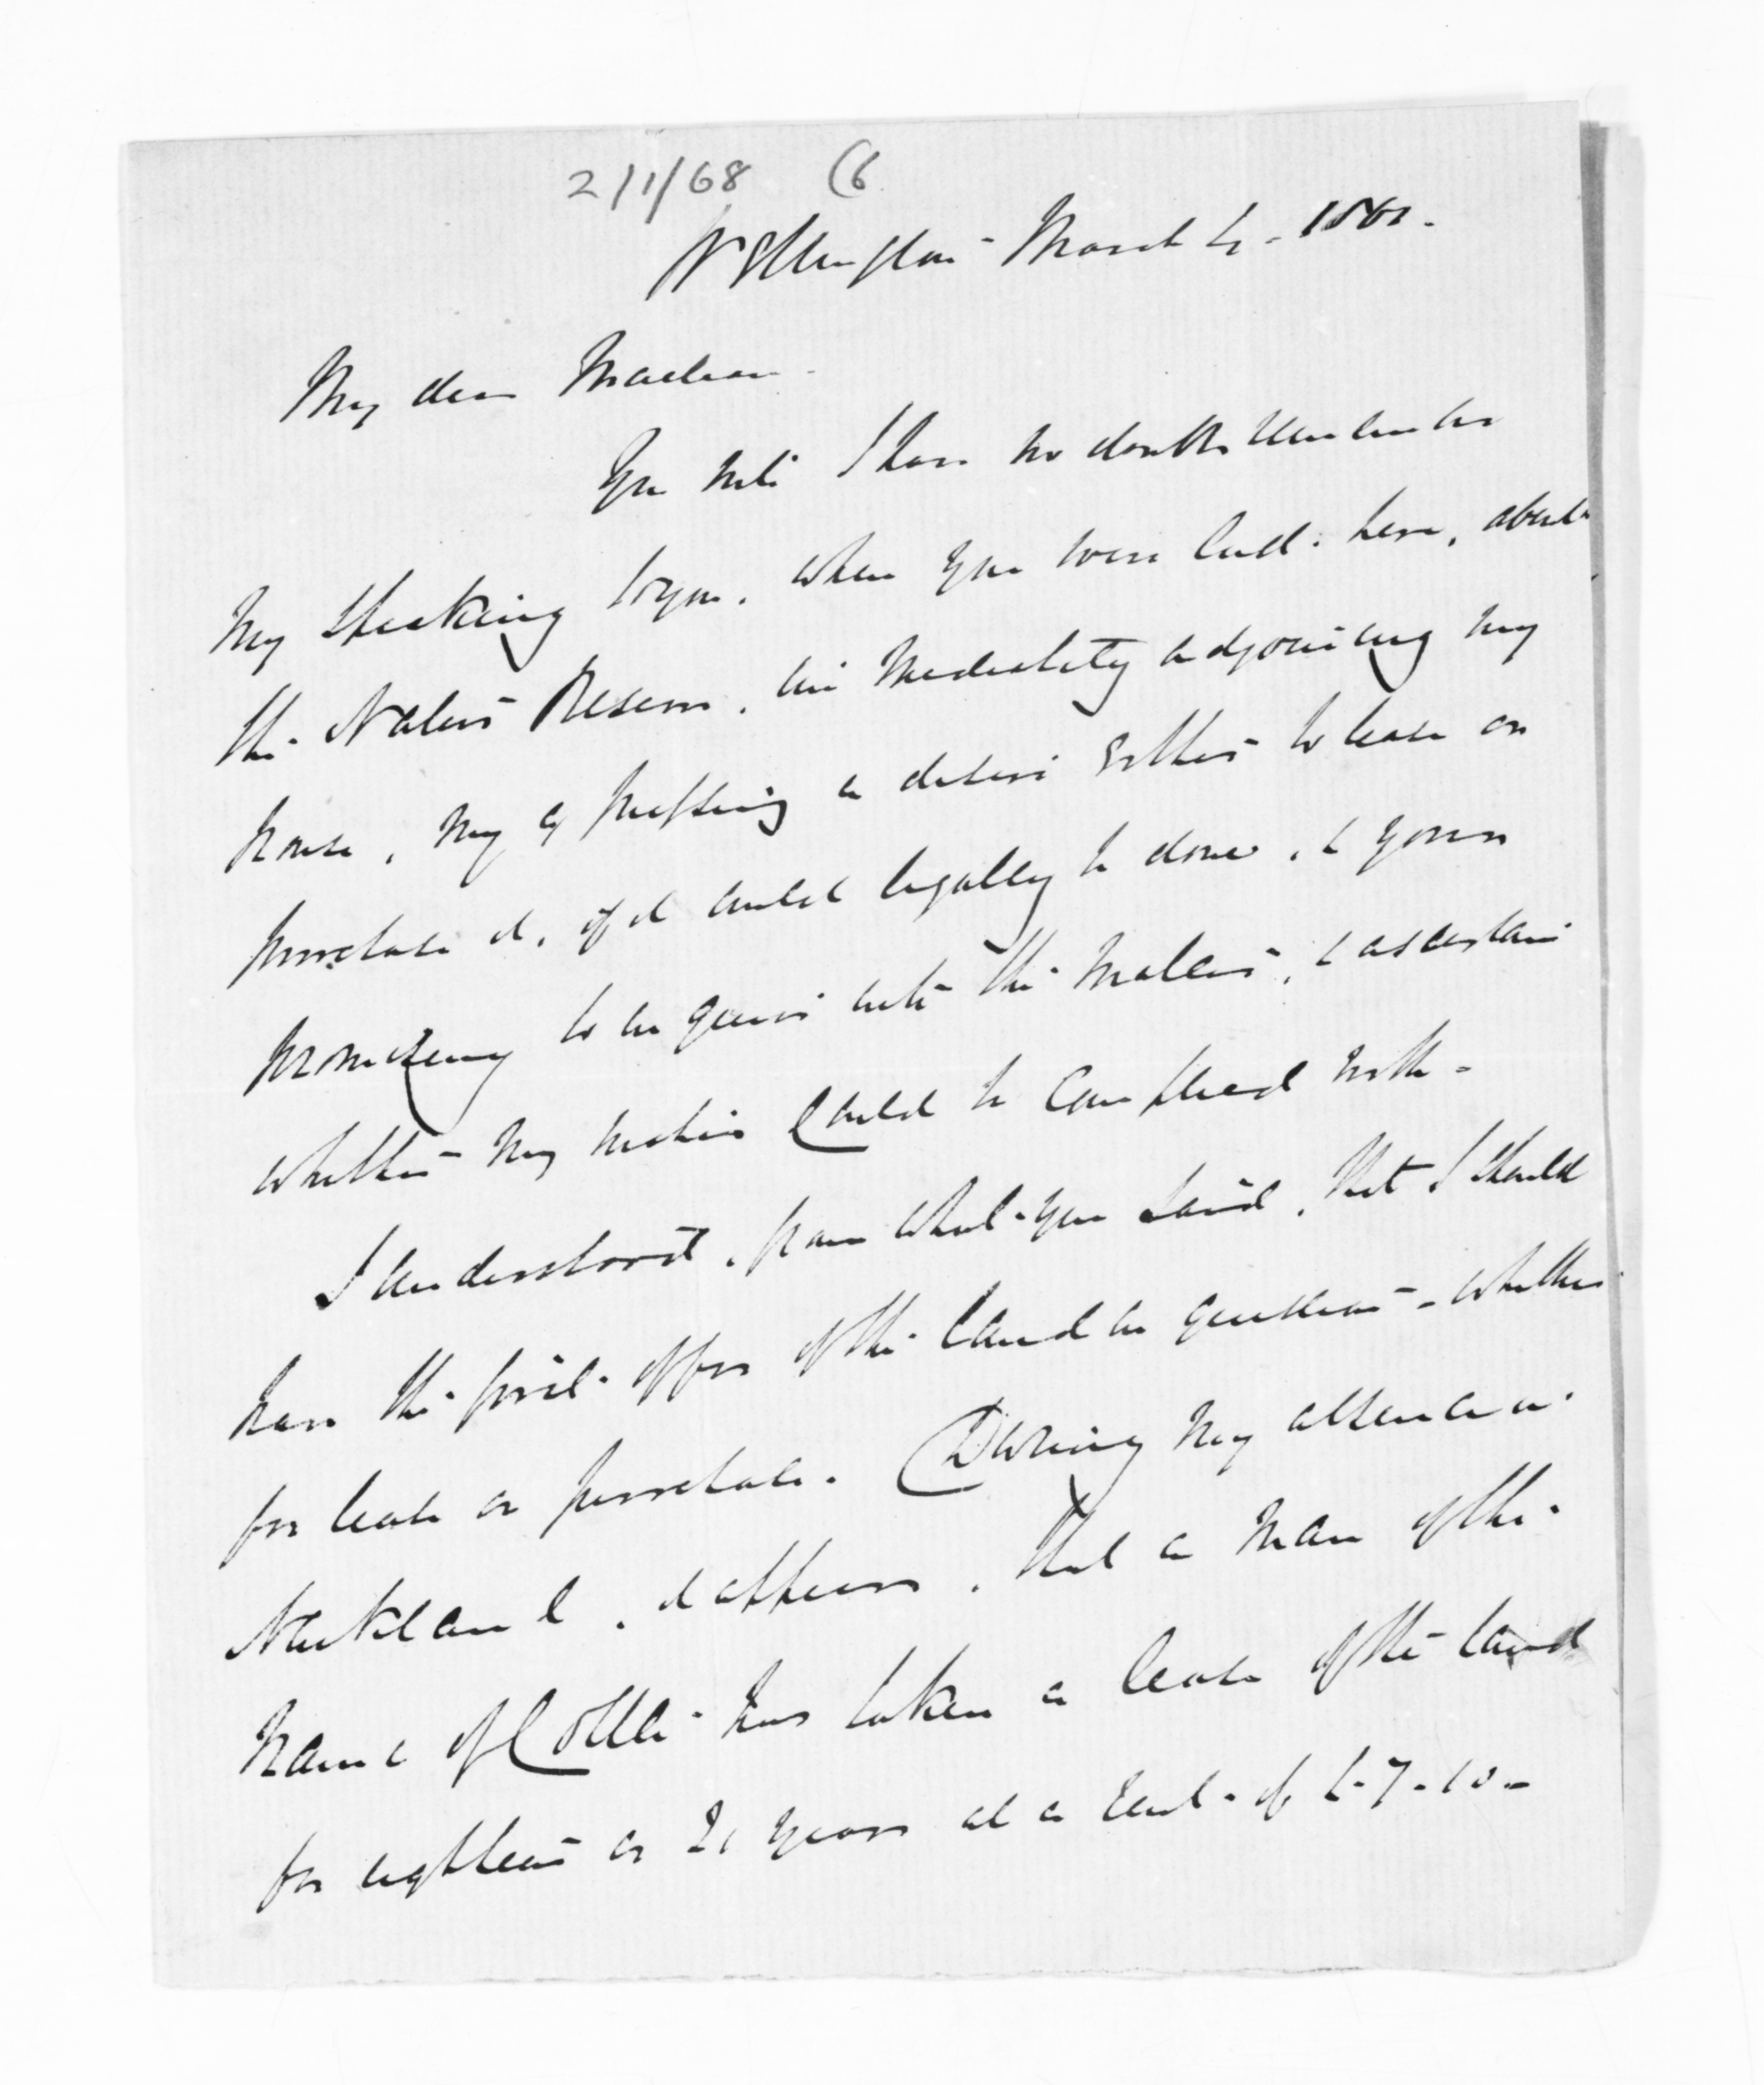 2/1/68 (6
Wellington March 4 - 1861.
My dear Maclean
You will I have no doubt remember
my speaking to you, when you were last here, about
the Native Reserve, immediately adjoining my
house, my expressing a desire either to lease or
purchase it, if it could legally be done, & your
promising to enquire into the matter, & ascertain
whether my wishes could be complied with -
I understood, from what you said, that I should
have the first offer of the land in question - whether
for lease or purchase. During my absence in
Auckland, it appears, that a man of the
name of Cottle has taken a lease of the land
for eighteen or 21 years at a rent of £-7-10-